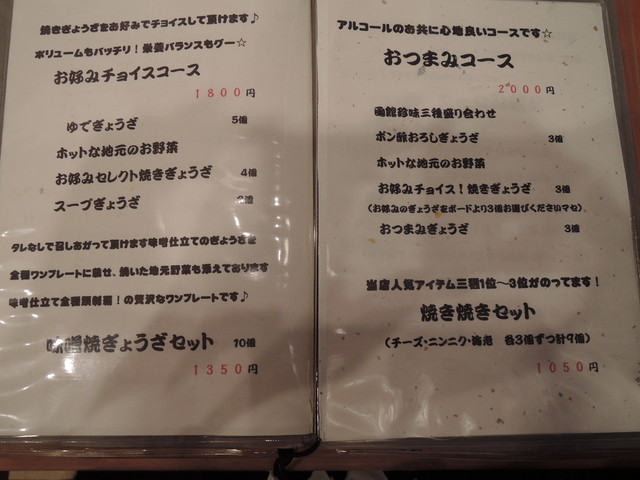 焼きぎょうざをお好みでチョイスして頂けます♪
ボリュームもバッチリ！栄養バランスもグー☆
お好みチョイスコース
1800円
ゆでぎょうざ 5個
ホットな地元のお野菜
お好みセレクト焼きぎょうざ 4個
スープぎょうざ
タレなしで召しあがって頂けます味噌仕立てのぎょうざを
全種ワンプレートに載せ、焼いた地元野菜も添えております
味噌仕立て全種類制覇！の贅沢なワンプレートです♪
味噌焼ぎょうざセット 10個
1350円
アルコールのお共に心地良いコースです☆
おつまみコース
2000円
函館珍味三種盛り合わせ
ポン酢おろしぎょうざ 3個
ホットな地元のお野菜
お好みチョイス！焼きぎょうざ 3個
（お好みのぎょうざをボードより3個お選びくださいマセ）
おつまみぎょうざ 3個
当店人気アイテム三種1位～3位がのってます！
焼き焼きセット
（チーズ・ニンニク・海港 各3個ずつ計9個）
1050円